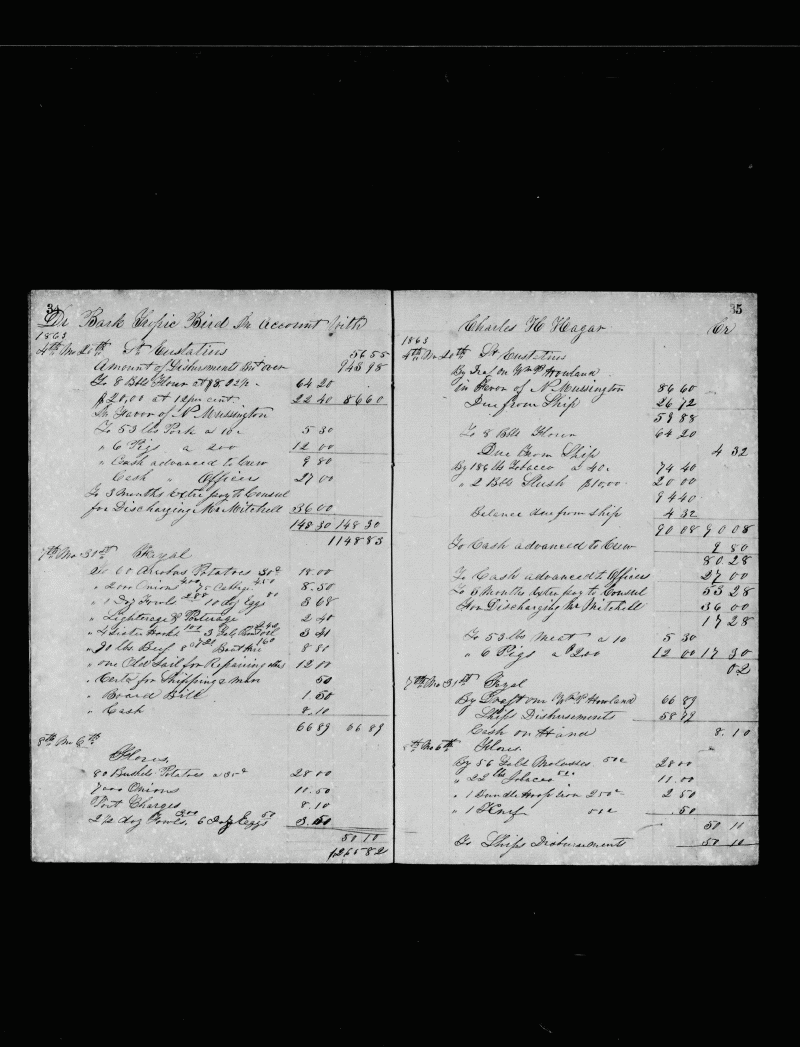 34
Dr Bark Tropic Bird In Account With
1863
4th Mo 20th St Eustatius 56 55
Amount of Disbursments Bt over 943 98
To 8 Bbls Flour at 64 20
$20,00 at 12 per cent 22 40 86 60
In Favor of N Mussington
To 53 lbs Pork a 10c 5 30
" 6 Pigs a 200 12 00
" Cash advanced to Crew 9 80
Cash " Officers 27 00
To 3 months extra pay to Consul
for Discharging Mr Mitchell 36 00
148 30 148 30
1148 83
7th Mo 31st Fayal
To 60 Arrobas Potatoes 30c 18.00
" 2000 Onions 400 Cabbge. 450 8.50
" 1 Doz Fowls 288 10 doz Eggs 80 3 68
" Lighterage & Porterage 2 40
" 4 Sister Hooks 102 3 Galls 3 41
" 90 lbs Beef 8c 720 Boat Hire 160 8 80
" one Old Sail for Repairing 12 10
" Certc for Shipping 2 men 50
" Board Bill 1.50
" Cash 8.10
66 89 66 89
8th Mo 6th
Flores
80 Bushels Potatoes a 35c 28 00
7000 Onions 11.50
Port Charges 8.10
2 1/2 doz Fowls 300 6 Doz Eggs 50 3.50
50 10
1265 82
35
Charles H Hagar Cr
1863
4th Mo 20th St Eustatius
By Draf on Wm P Howland
in Favor of N Mussington 86 60
Due from Ship 26 72
59 88
To 8 Bbls Flour 64 20
Due From Ship 4 32
By 186 lbs Tobacco a 40c 74 40
" 2 Bbls Slush $1000 20 00
94 40
Balance due from ship 4 32
90 08 90 08
To Cash advanced to Crew 9 80
80.28
To Cash advanced to Officers 27 00
To 3 Months Extra pay to Consul 53 28
For Discharging Mr Mitchell 36 00
17 28
To 53 lbs meat a 10 5 30
" 6 Pigs a 200 12 00 17 30
02
7th Mo 31st Fayal
By Draft on Wm P Howland 66 89
Ships Disbursments 58 79
Cash on Hand 8.10
8th Mo 6th Flores
By 56 Galls Molasses 50c 28 00
" 22 lbs Tobacco 50c 11.00
" 1 Bundle Hoop Iron 250c 2 50
" 1 Knife 50c .50
50 10
To Ships Disbursements 50 10